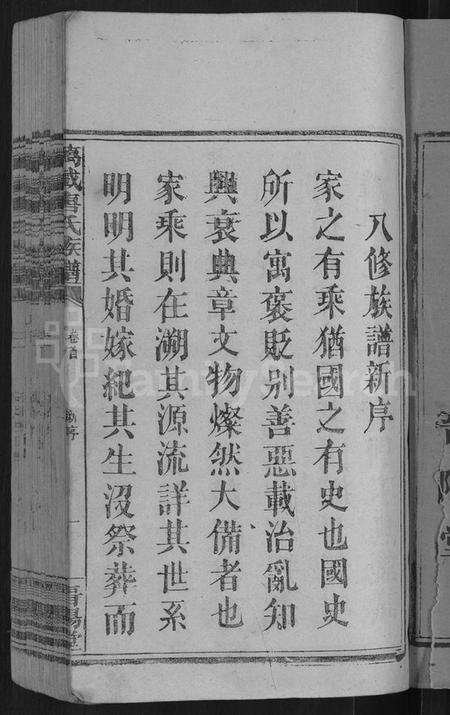 八修族譜新序
家之有乘猶國之有史也國史
所以寓褒貶别善惡載治亂知
興衰典章文物燦然大備者也
家乘則在溯其源流詳其世系
明明其婚嫁紀其生沒祭葬而
萬載 氏族譜
卷首
新序
一
堂